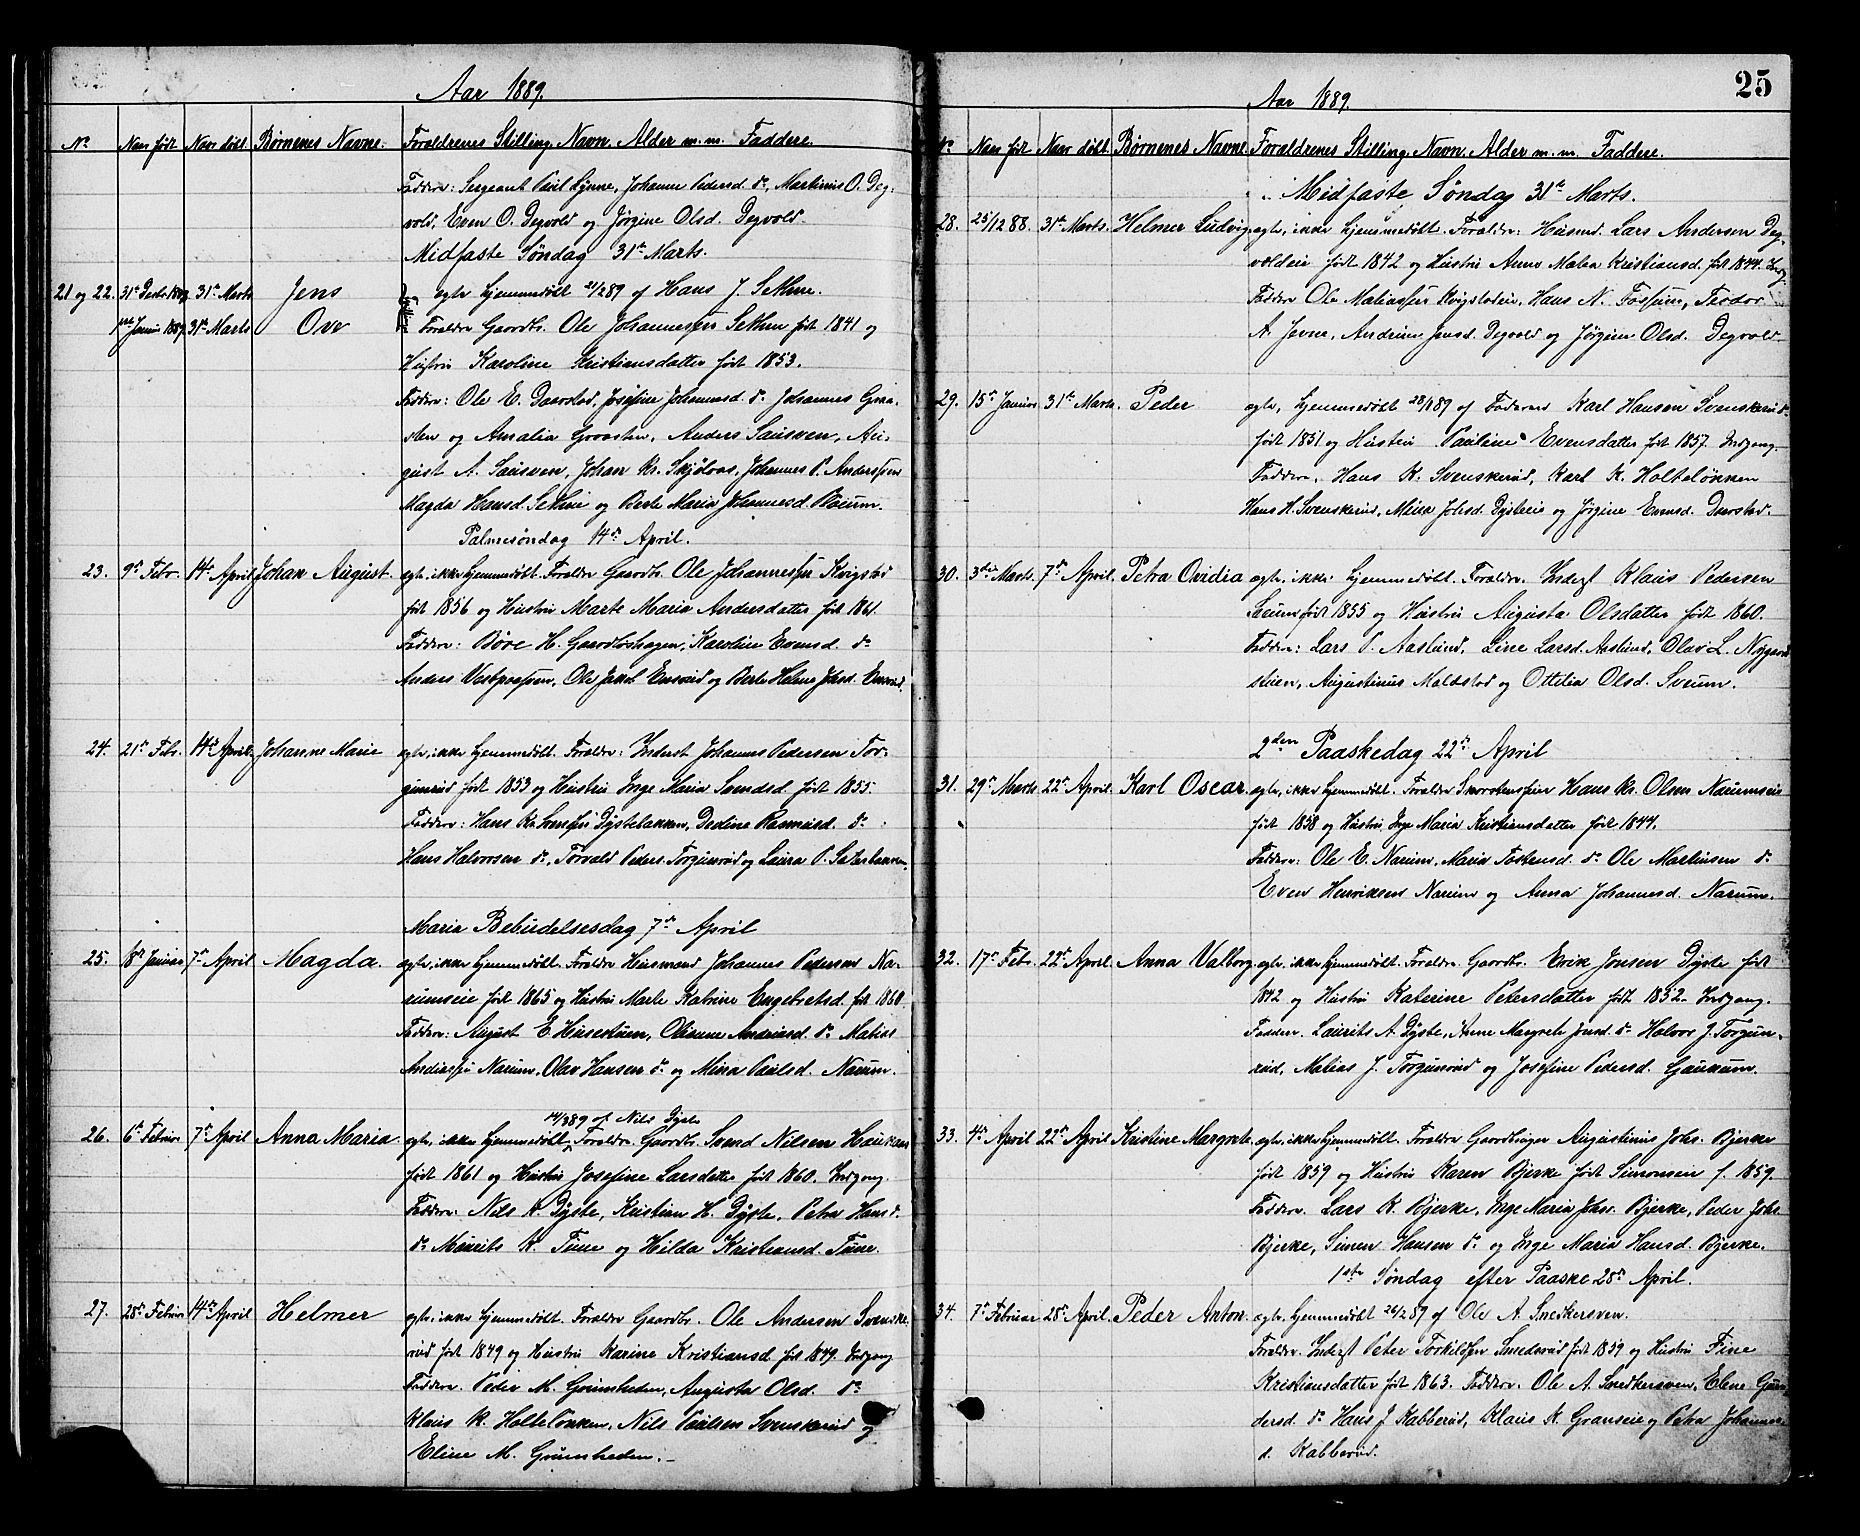 Aar 1889.
No Naar født Naar døbt Børnenes Navne. Forældrenes Stilling, Navn, Alder m. m. Faddere.
Faddere: Sergeant Paul Lynne, Johanne Pedersd. do, Martinus O. Deg-
vold, Even O. Degvold og Jørgine Olsd. Degvold.
Midfaste Søndag 31te Marts.
21 og 22. 31te Decbr. 31te Marts Jens ægte hjemmedøbt 21/2 89 af Hans J. Sethne.
1ste Januar 1889. 31te Marts Ove Forældre Gaardbr. Ole Johannesen Sethne født 1841 og
Hustru Karoline Kristiansdatter født 1853.
Faddere: Ole E. Daarstad, Josefine Johannesd. do Johannes Graa-
sten og Amalia Graasten, Anders Sausven, Au-
gust A. Sausven, Johan Kr. Skjølaas, Johannes P. Anderssen
Magda Hansd. Sethne og Berte Maria Johannesd.
Palmesøndag 14de April.
23. 9de Febr. 14de April Johan August. ægte, ikke hjemmedøbt. Forældre Gaardbr. Ole Johannessen Kvigstad
født 1856 og Hustru Marte Maria Andersdatter født 1861.
Faddere: Børe H. Gaardløshagen, Karoline Evensd. do
Anders Ole Jakob Ensrud og Berte Helene Johsd. Ensrud.
24. 21de Febr. 14de April. Johanne Marie ægte, ikke hjemmedøbt. Forældre: Inderst Johannes Pedersen Tor-
gunrud født 1853 og Hustru Inge Maria Svendsd. født 1855.
Faddere: Hans Kr. Dystebakken, Dedine Rasmusd. do
Hans Halvorsen do, Torvald Peders. Torgunrud og Laura P. Sæterbakken.
Maria Bebudelsesdag 7de April
25. 18de Januar 7de April Magda. ægte, ikke hjemmedøbt. Forældre Husmand Johannes Pedersen Na-
rumseie født 1865 og Hustru Marte Katrine Engebretsd. født 1860.
Faddere: August E. Husestuen, Olianne Andreasd. do Matias
Andressen Narum, Olav Hansen do og Mina Paulsd. Narum.
14/2 89 af Nils Dyste
26. 6te Februar 7de April Anna Maria. ægte, ikke hjemmedøbt Forældre Gaardbr. Svend Nilsen Haukaas
født 1861 og Hustru Josefine Larsdatter født 1860. Indgang.
Faddere: Nils K. Dyste, Kristian H. Dyste, Petra Hansd.
do Maurits K. Tune og Hilda Kristiansd. Tune.
27. 28de Februar 14de April Helmer ægte, ikke hjemmedøbt. Forældre Gaardbr. Ole Andersen Svenske-
rud født 1849 og Hustru Karine Kristiansd. født 1849. Indgang
Faddere. Peder M. Grimsheden, Augusta Olsd. do
Klaus K. Holteløkken, Nils Paulsen Svenskerud og
Eline M. Grimsheden.
25
Aar 1889.
No Naar født Naar døbt. Børnenes Navne Forældrenes Stilling, Navn, Alder m. m. Faddere.
Midfaste Søndag 31te Marts.
28. 25/12 88. 31te Marts. Helmer Ludvig ægte, ikke hjemmedøbt. Forældre: Husmd. Lars Andersen Deg-
voldeie født 1842 og Hustru Anne Malea Kristiansd. født 1844. Indg.
Faddere Ole Matiassen Kvigstadeie, Hans N. Fossum, Teodor
A. Jevne, Andrine Jensd. Degvold og Jørgine Olsd. Degvold.
29. 15de Januar 31te Marts. Peder ægte, hjemmedøbt 28/1 89 af Faderen Karl Hansen Svenskerud.
født 1851 og Hustru Pauline Evensdatter født 1857. Indgang.
Faddere, Hans K. Svenskerud, Karl K. Holteløkken
Hans H. Svenskerud, Mina Johsd. Dysteeie og Jørgine Evensd. Daarstad.
30. 3die Marts. 7de April. Petra Ovidia ægte, ikke hjemmedøbt. Forældre. Inderst Klaus Pedersen
Sveum født 1855 og Hustru Augusta Olsdatter født 1860.
Faddere: Lars P. Aaslund, Line Larsd. Aaslund, Olav L. Nygaard
stuen, Augustinus Moldstad og Ottilia Olsd. Sveum.
2den Paaskedag 22de April
31. 29de Marts 22de April. Karl Oscar. ægte, ikke hjemmedøbt. Forældre Skorstensfeier Hans Kr. Olsen Narumseie
født 1858 og Hustru Inge Maria Kristiansdatter født 1844.
Faddere: Ole E. Narum, Maria Tostensd. do Ole Martinsen do
Even Henriksen Narum og Anna Johannesd. Narum.
32. 17de Febr. 22de April. Anna Valborg. ægte, ikke hjemmedøbt. Forældre Gaardbr. Erik Jonsen Dyste født
1842 og Hustru Katerine Petersdatter født 1852. Indgang.
Faddere. Laurits A. Dyste, Anne Margrete Jonsd. do Halvor J. Torgun-
rud, Matias J. Torgunrud og Josefine Pedersd. Gaukum.
33. 4de April 22de April Kristine Margrete. ægte, ikke hjemmedøbt. Forældre Gaardbruger Augustinus Johs. Bjerke
født 1859 og Hustru Karen Bjerke født Simonsen f. 1859.
Faddere. Lars K. Bjerke, Inge Maria Johs. Bjerke, Peder Johs.
Bjerke, Simen Hansen do og Inge Maria Hansd. Bjerke.
1ste Søndag efter Paaske 28de April.
34. 7de Februar 28de April. Peder Anton. ægte, hjemmedøbt 26/2 89 af Ole A. Snedkersven.
Forældre. Inderst Peter Torkildsen Smedsrud født 1859 og Hustru Tine
Kristiansdatter født 1863. Faddere. Ole A. Snedkersven, Elene Gun-
dersd. do Hans J. Kabberud, Klaus K. Granseie og Petra Johannes-
d. Kabberud.